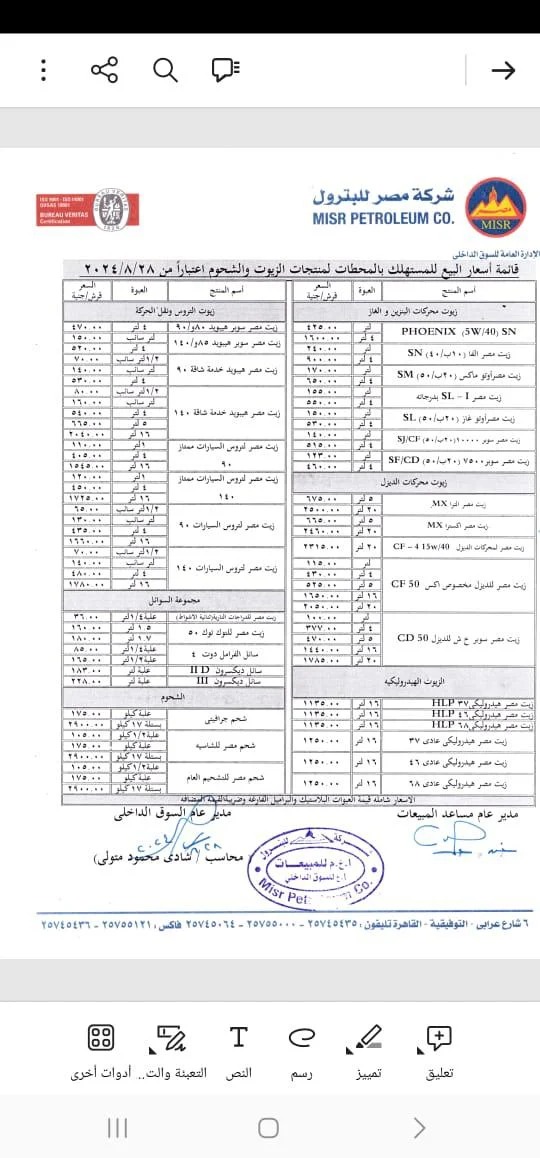 ISO 9001 - ISO 14001
OHSAS 18001
BUREAU VERITAS
Certification
شركة مصر للبترول
MISR PETROLEUM CO.
MISR
الإدارة العامة للسوق الداخلى
قائمة أسعار البيع للمستهلك بالمحطات لمنتجات الزيوت والشحوم اعتباراً من ٢٠٢٤/٨/٢٨
اسم المنتج العبوة السعر قرش/جنية
زيوت محركات البنزين و الغاز
PHOENIX (5W/40) SN لتر ٤٢٥.٠٠
٤ لتر ١٦٠٠.٠٠
زيت مصر الفا (١٠ب/٤٠) SN لتر ٢٤٠.٠٠
٤ لتر ٩٠٠.٠٠
زيت مصرأوتو ماكس (٢٠ب/٥٠) SM لتر ١٧٠.٠٠
٤ لتر ٦٥٠.٠٠
زيت مصر SL - I بدرجاته لتر ١٥٥.٠٠
٤ لتر ٥٥٠.٠٠
زيت مصرأوتو غاز (٢٠ب/٥٠) SL لتر ١٥٠.٠٠
٤ لتر ٥٣٠.٠٠
زيت مصر سوبر ١٠٠٠٠ (٢٠ب/٥٠) SJ/CF لتر ١٤٠.٠٠
٤ لتر ٥١٥.٠٠
زيت مصر سوبر ٧٥٠٠ (٢٠ب/٥٠) SF/CD لتر ١٢٣.٠٠
٤ لتر ٤٦٠.٠٠
زيوت محركات الديزل
زيت مصر الترا MX ٥ لتر ٦٧٥.٠٠
٢٠ لتر ٢٥٠٠.٠٠
زيت مصر اكسترا MX ٥ لتر ٦٦٥.٠٠
٢٠ لتر ٢٤٦٠.٠٠
زيت مصر لمحركات الديزل CF - 4 15w/40 ٢٠ لتر ٢٣١٥.٠٠
زيت مصر للديزل مخصوص اكس CF 50 لتر ١١٥.٠٠
٤ لتر ٤٣٠.٠٠
٥ لتر ٥٢٥.٠٠
١٦ لتر ١٦٥٠.٠٠
٢٠ لتر ٢٠٥٠.٠٠
زيت مصر سوبر خ ش للديزل CD 50 لتر ١٠٠.٠٠
٤ لتر ٣٧٧.٠٠
٥ لتر ٤٧٠.٠٠
١٦ لتر ١٤٤٠.٠٠
٢٠ لتر ١٧٨٥.٠٠
الزيوت الهيدروليكيه
زيت مصر هيدروليكى ٣٧ HLP ١٦ لتر ١١٣٥.٠٠
زيت مصر هيدروليكى ٤٦ HLP ١٦ لتر ١١٣٥.٠٠
زيت مصر هيدروليكى ٦٨ HLP ١٦ لتر ١١٣٥.٠٠
زيت مصر هيدروليكى عادى ٣٧ ١٦ لتر ١٢٥٠.٠٠
زيت مصر هيدروليكى عادى ٤٦ ١٦ لتر ١٢٥٠.٠٠
زيت مصر هيدروليكى عادى ٦٨ ١٦ لتر ١٢٥٠.٠٠
اسم المنتج العبوة السعر قرش/جنية
زيوت التروس ونقل الحركة
زيت مصر سوبر هيبويد ٨٠و/٩٠ ٤ لتر ٤٧٠.٠٠
زيت مصر سوبر هيبويد ٨٥و/١٤٠ لتر سائب ١٥٠.٠٠
٤ لتر ٥٢٠.٠٠
زيت مصر هيبويد خدمة شاقة ٩٠ ١/٢لتر سائب ٧٠.٠٠
لتر سائب ١٤٠.٠٠
٤ لتر ٥٣٠.٠٠
زيت مصر هيبويد خدمة شاقة ١٤٠ ١/٢لتر سائب ٨٠.٠٠
لتر سائب ١٦٠.٠٠
٤ لتر ٥٤٠.٠٠
٥ لتر ٦٦٥.٠٠
١٦ لتر ٢٠٤٠.٠٠
زيت مصر لتروس السيارات ممتاز ٩٠ ١لتر ١١٠.٠٠
٤ لتر ٤٠٥.٠٠
١٦ لتر ١٥٤٥.٠٠
زيت مصر لتروس السيارات ممتاز ١٤٠ ١لتر ١٢٠.٠٠
٤ لتر ٤٥٠.٠٠
١٦ لتر ١٧٢٥.٠٠
زيت مصر لتروس السيارات ٩٠ ١/٢لتر سائب ٦٥.٠٠
لتر سائب ١٣٠.٠٠
٤ لتر ٤٣٥.٠٠
١٦ لتر ١٦٦٠.٠٠
زيت مصر لتروس السيارات ١٤٠ ١/٢لتر سائب ٧٠.٠٠
لتر سائب ١٤٠.٠٠
٤ لتر ٤٨٠.٠٠
١٦ لتر ١٧٨٠.٠٠
مجموعة السوائل
زيت مصر للدراجات النارية(ثنائية الاشواط) علبة١/٤لتر ٣٦.٠٠
زيت مصر للتوك توك ٥٠ ١.٥ لتر ١٦٠.٠٠
١.٧ لتر ١٨٠.٠٠
سائل الفرامل دوت ٤ علبة١/٤لتر ٨٥.٠٠
علبة١/٢لتر ١٦٥.٠٠
سائل ديكسرون II D علبة لتر ١٨٣.٠٠
سائل ديكسرون III علبة لتر ٢٢٨.٠٠
الشحوم
شحم جرافيتى علبة كيلو ١٧٥.٠٠
بستلة ١٧ كيلو ٢٩٠٠.٠٠
شحم مصر للشاسيه علبة١/٢كيلو ١٠٥.٠٠
علبة كيلو ١٧٥.٠٠
بستلة ١٧ كيلو ٢٩٠٠.٠٠
شحم مصر للتشحيم العام علبة١/٢كيلو ١٠٥.٠٠
علبة كيلو ١٧٥.٠٠
بستلة ١٧ كيلو ٢٩٠٠.٠٠
الاسعار شامله قيمة العبوات البلاستيك والبراميل الفارغه وضريبةالقيمة المضافه
مدير عام مساعد المبيعات
مدير عام السوق الداخلى
محاسب / شادى محمود متولى)
شركة للبترول
ا.ع.م للمبيعات
ا.ع للسوق الداخلى
Misr Pet Co.
٦ شارع عرابى - التوفيقية - القاهرة تليفون: ٢٥٧٤٥٤٣٥ - ٢٥٧٥٥٠٠٠ - ٢٥٧٤٥٠٦٤ فاكس: ٢٥٧٥٥١٢١ - ٢٥٧٤٥٤٣٦
تعليق
تمييز
رسم
النص
التعبئة والت..
أدوات أخرى